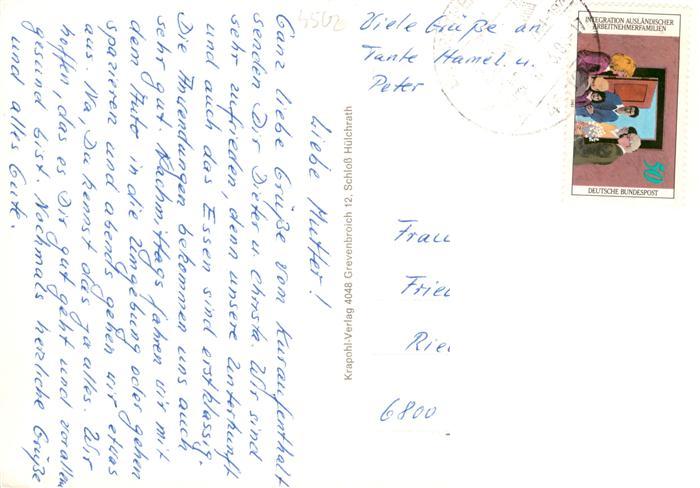 Liebe Mutter!
Ganz liebe Grüße vom Kuraufenthalt
senden Dir Dieter u. Christa. Wir sind
sehr zufrieden, denn unsere Unterkunft
und auch das Essen sind erstklassig.
Die Anwendungen bekommen uns auch
sehr gut. Nachmittags fahren wir mit
dem Auto in die Umgebung oder gehen
spazieren und abends gehen wir etwas
aus. Na, Du kennst das ja alles. Wir
hoffen, das es Dir gut geht und vorallem
gesund bist. Nochmals herzliche Grüße
und alles Gute.
4502
Viele Grüße an
Tante Hamel. u.
Peter
Krapohl-Verlag 4048 Grevenbroich 12, Schloß Hülchrath
INTEGRATION AUSLÄNDISCHER
ARBEITNEHMERFAMILIEN
50
DEUTSCHE BUNDESPOST
Frau
Frie
Rie
6800